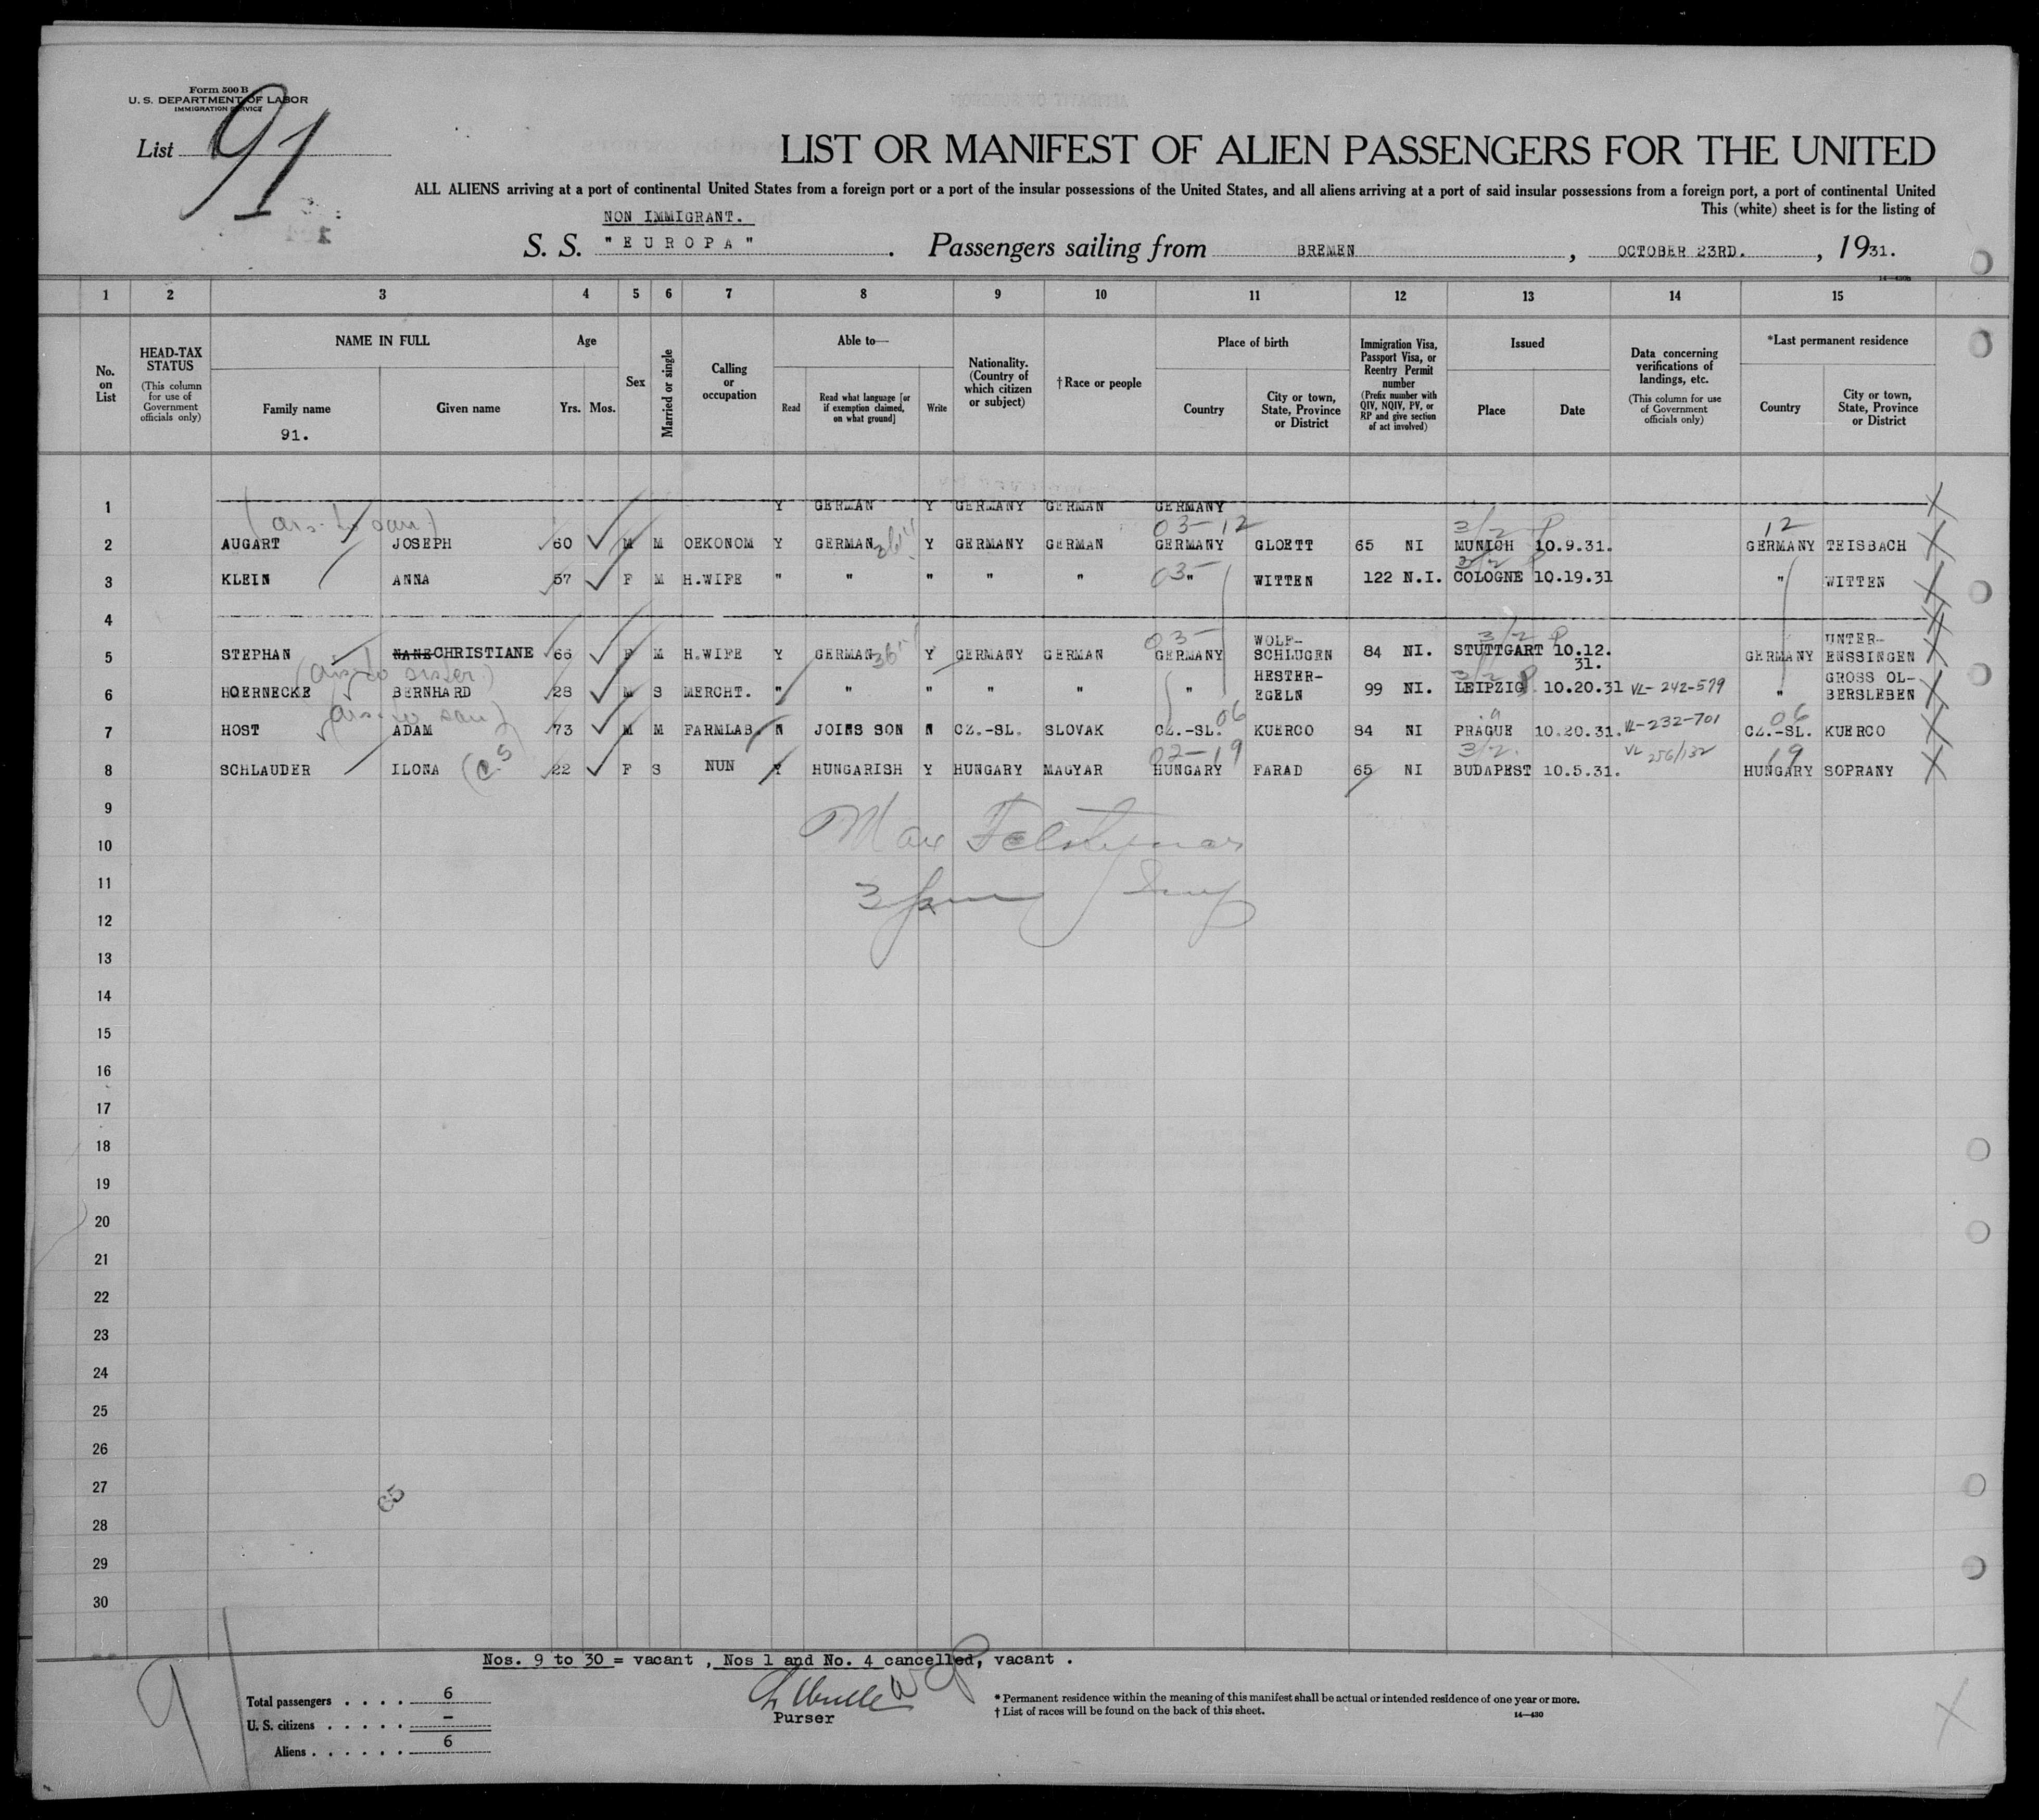 Form 500 B
U. S. DEPARTMENT OF LABOR
IMMIGRATION SERVICE
List 91
LIST OR MANIFEST OF ALIEN PASSENGERS FOR THE UNITED
ALL ALIENS arriving at a port of continental United States from a foreign port or a port of the insular possessions of the United States, and all aliens arriving at a port of said insular possessions from a foreign port, a port of continental United
This (white) sheet is for the listing of
NON IMMIGRANT.
S. S. "EUROPA" . Passengers sailing from BREMEN , OCTOBER 23RD. , 1931.
14—430B
1 2 3 4 5 6 7 8 9 10 11 12 13 14 15
No. on List
HEAD-TAX STATUS (This column for use of Government officials only)
NAME IN FULL
Family name
91.
Given name
Age
Yrs. Mos.
Sex
Married or single
Calling or occupation
Able to—
Read
Read what language [or if exemption claimed, on what ground]
Write
Nationality. (Country of which citizen or subject)
†Race or people
Place of birth
Country
City or town, State, Province or District
Immigration Visa, Passport Visa, or Reentry Permit number (Prefix number with QIV, NQIV, PV, or RP and give section of act involved)
Issued
Place
Date
Data concerning verifications of landings, etc. (This column for use of Government officials only)
*Last permanent residence
Country
City or town, State, Province or District
1 Y GERMAN Y GERMANY GERMAN GERMANY
03-12 3/2 P 12
2 AUGART JOSEPH 60 M M OEKONOM Y GERMAN Y GERMANY GERMAN GERMANY GLOETT 65 NI MUNICH 10.9.31. GERMANY TEISBACH
03- 3/2
3 KLEIN ANNA 57 F M H.WIFE " " " " " " WITTEN 122 N.I. COLOGNE 10.19.31 " WITTEN
4
03- 3/2 P
5 STEPHAN NANE CHRISTIANE 66 F M H.WIFE Y GERMAN Y GERMANY GERMAN GERMANY WOLF-SCHLUGEN 84 NI. STUTTGART 10.12.31. GERMANY UNTER-ENSSINGEN
6 HOERNECKE BERNHARD 28 M S MERCHT. " " " " " " HESTER-EGELN 99 NI. LEIPZIG 10.20.31 VL-242-579 " GROSS OL-BERSLEBEN
06 06
7 HOST ADAM 73 M M FARMLAB. N JOINS SON N CZ.-SL. SLOVAK CZ.-SL. KUERCO 84 NI PRAGUE 10.20.31. VL-232-701 CZ.-SL. KUERCO
02-19 3/2. 19
8 SCHLAUDER ILONA 22 F S NUN Y HUNGARISH Y HUNGARY MAGYAR HUNGARY FARAD 65 NI BUDAPEST 10.5.31. VL 256/132 HUNGARY SOPRANY
9
10 Max
11
12
13
14
15
16
17
18
19
20
21
22
23
24
25
26
27
28
29
30
Nos. 9 to 30 = vacant , Nos 1 and No. 4 cancelled, vacant .
Total passengers . . . . 6
U. S. citizens . . . . . –
Aliens . . . . . . 6
Purser
* Permanent residence within the meaning of this manifest shall be actual or intended residence of one year or more.
† List of races will be found on the back of this sheet.
14—430